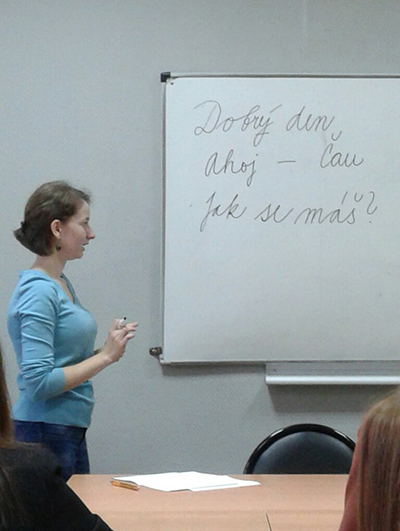 Dobrý den
ahoj – čau
Jak se máš?